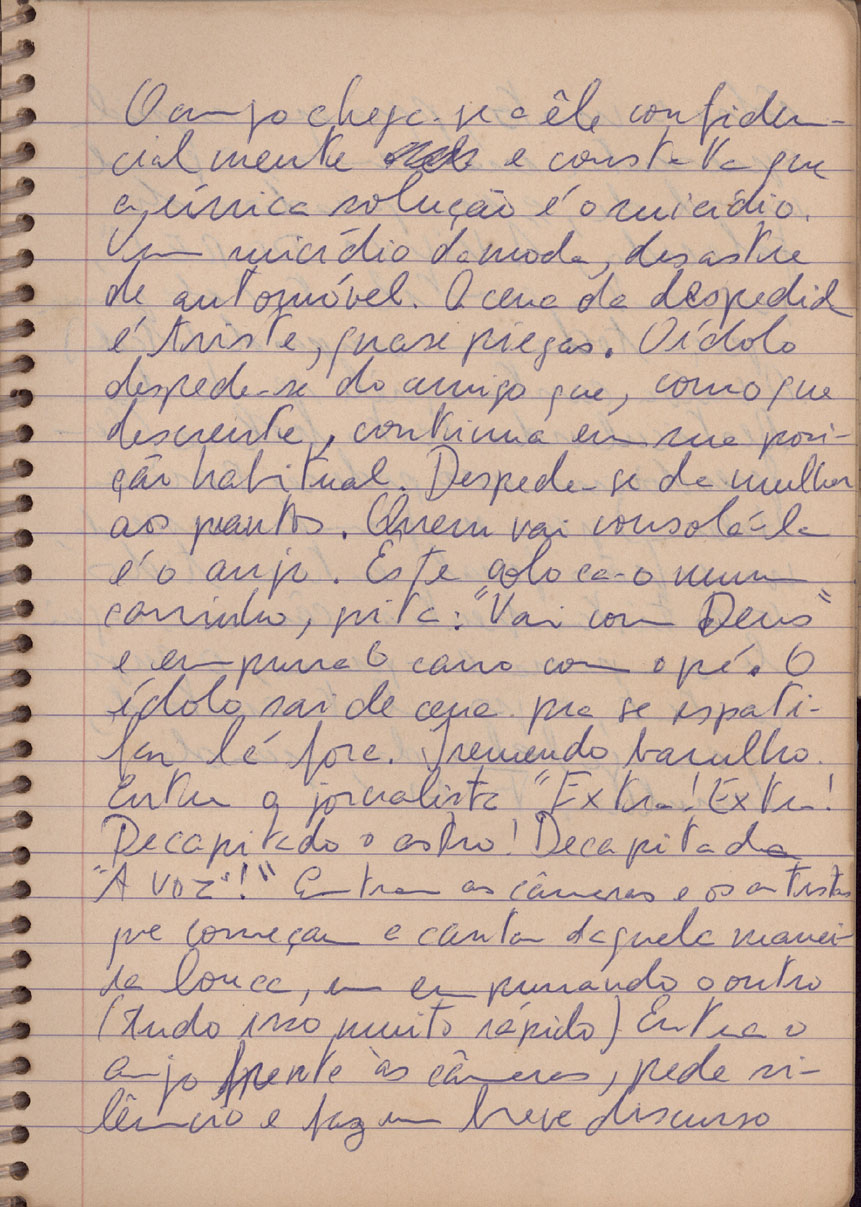 O anjo chega-se a êle confiden-
cialmente e constata que
a única solução é o suicídio.
Um suicídio da moda, desastre
de automóvel. A cena da despedida
é triste, quase piegas. O ídolo
despede-se do amigo que, como que
descrente, continua em sua posi-
ção habitual. Despede-se da mulher
aos prantos. Quem vai consolá-la
é o anjo. Este coloca-o num
carrinho, grita: "Vai com Deus"
e empurra o carro com o pé. O
ídolo sai de cena pra se espati-
far lá fora. Tremendo barulho.
Entra o jornalista "Extra! Extra!
Decapitado o astro! Decapitada
"A voz"!" Entram as câmeras e os artistas
que começam a cantar daquela manei-
ra louca, um empurrando o outro
(tudo isso muito rápido) Entra o
anjo frente às câmeras, pede si-
lêncio e faz um breve discurso